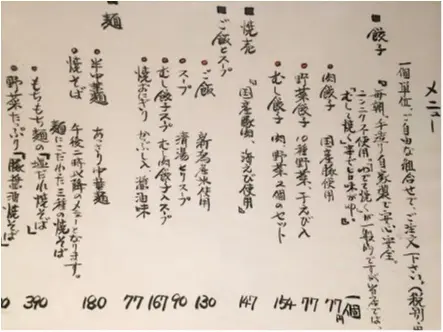 メニュー
一個単位ご自由な組合せで、ご注文下さい。(税別・
■餃子
『毎朝、手造り自家製で安心安全。
ニンニク不使用、ゆでて焼くが一般的ですが当店では、
“むして焼く”事で旨味が中。』
一個
・肉餃子 国産豚使用 77円
・野菜餃子 10種野菜、干えび入 77
・むし餃子 肉、野菜2個のセット 154
■焼売
『国産豚肉、海えび使用』 147
■ご飯とスープ
・ご飯 新潟産米使用 130
・スープ 清湯とりスープ 90
・むし餃子スープ むし肉餃子入スープ 167
・焼おにぎり かぶと入、醤油味 77
■麺
・半中華麺 あっさり中華麺 180
・焼そば 午後二時以降のメニューとなります。
麺にこだわった三種の焼そば
・もちもち麺の『塩だれ焼そば』 390
・野菜たっぷり『豚醤油焼そば』